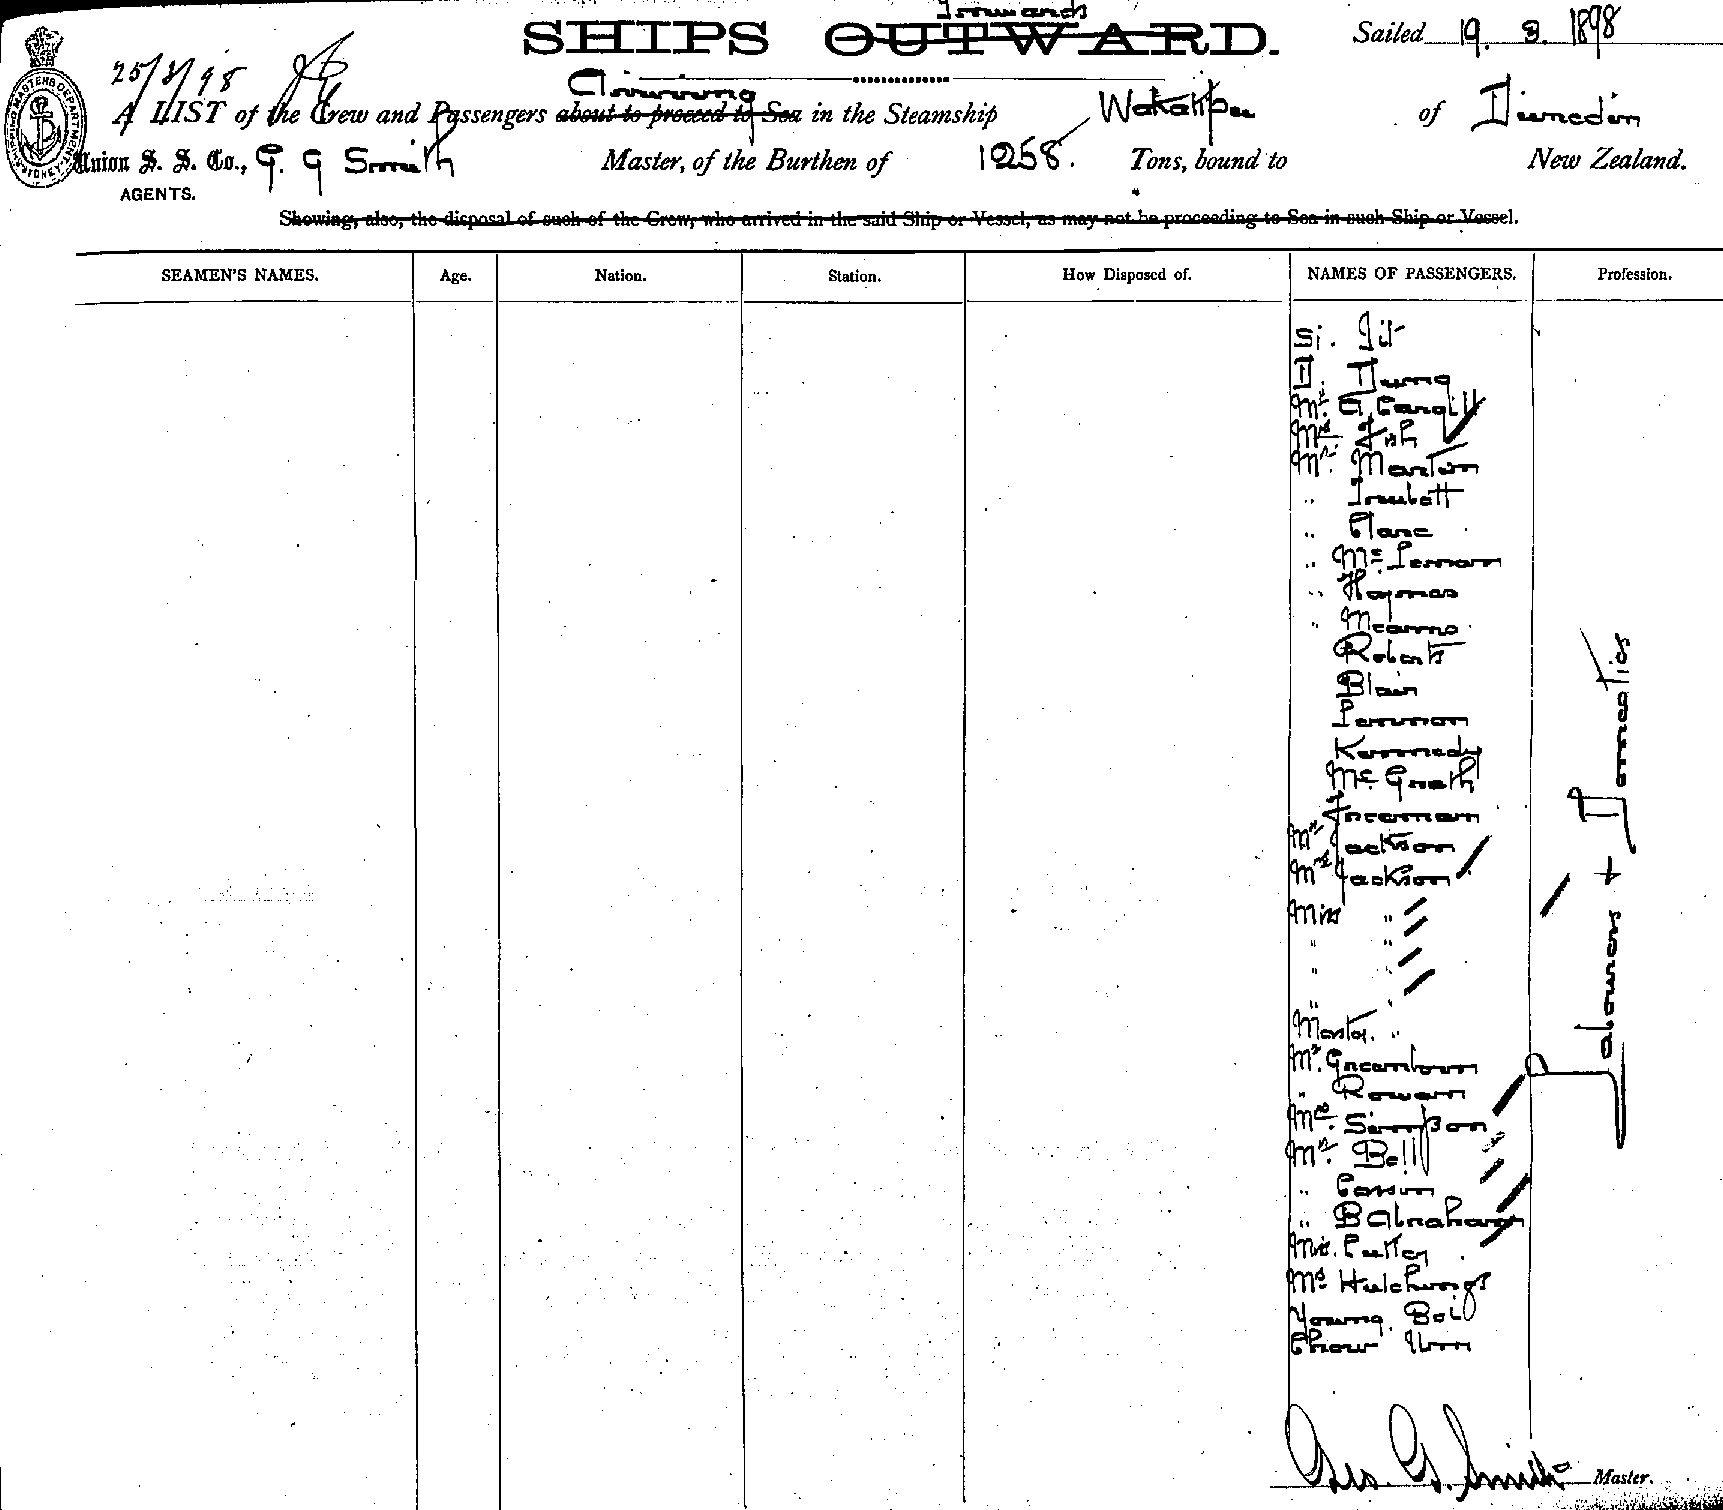 Inwards
SHIPS OUTWARD.
Sailed 19. 3. 1898
25/3/98
Arriving
A LIST of the Crew and Passengers about to proceed to Sea in the Steamship Wakatipu of Dunedin
Union S. S. Co., G. G Smith Master, of the Burthen of 1258. Tons, bound to New Zealand.
AGENTS.
Showing, also, the disposal of such of the Crew, who arrived in the said Ship or Vessel, as may not be proceeding to Sea in such Ship or Vessel.
SEAMEN'S NAMES. Age. Nation. Station. How Disposed of. NAMES OF PASSENGERS. Profession.
Mr. A Cargill
Mrs Fish
Mr. Martin
"
" Clare
" McLennan
" Haymes
" Mearns
Roberts
Blair
Lennon
Kennedy
McGrath
Freeman
Mr Jackson
Mrs Jackson
Miss "
" "
" "
" "
Master. "
Mr. Greenbourn
" Rowan
Mrs. Simpson
Mr. Bell
"
" B Abrahams
Miss.
Mrs Hutchings
Young
Chow
Labourers + Domestics
Geo. G. Smith Master.